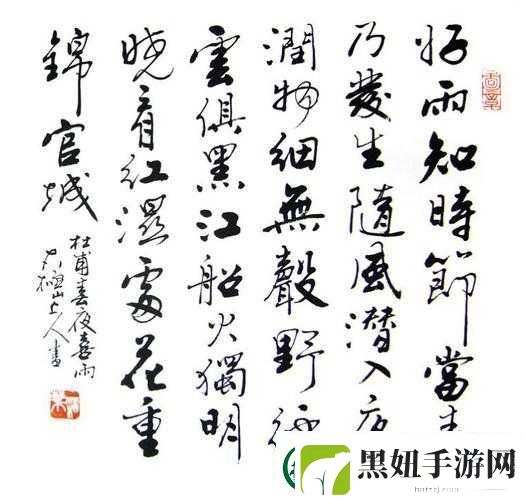 好雨知時節當春
乃發生隨風潛入夜
潤物細無聲野徑
雲俱黑江船火獨明
曉看紅濕處花重
錦官城
杜甫春夜喜雨
山上人書
黑妞手游网